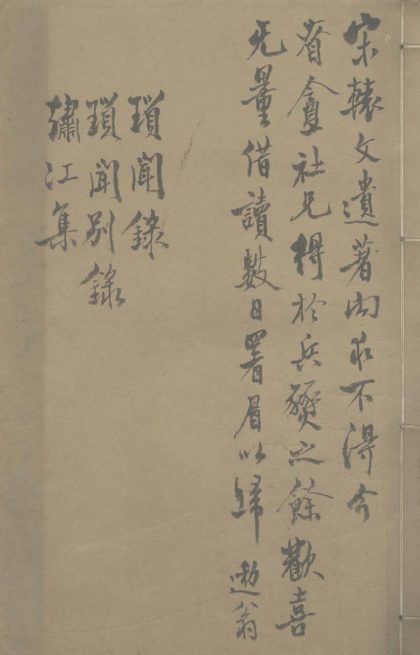 宋轅文遺著向求不得今
省盦社兄得於兵燹之餘歡喜
无量借讀數日署眉以歸 遯翁
瑣聞錄
瑣聞別錄
繡江集